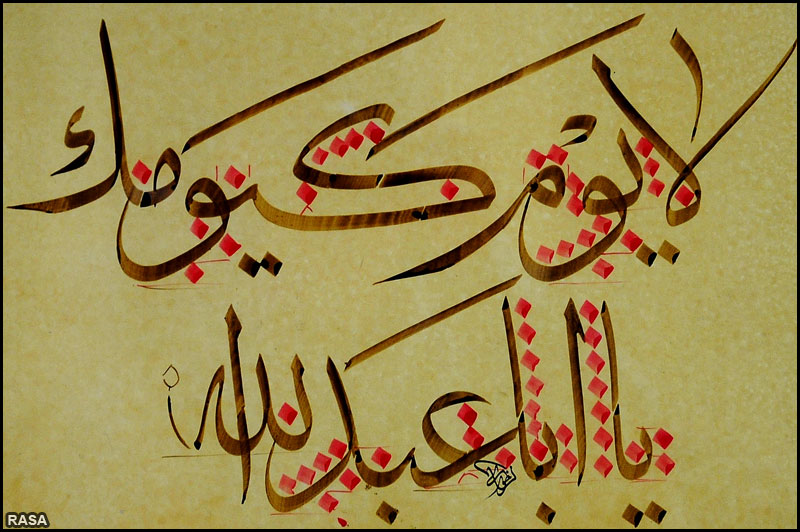 لا یوم کیومك
یا ابا عبد الله
RASA